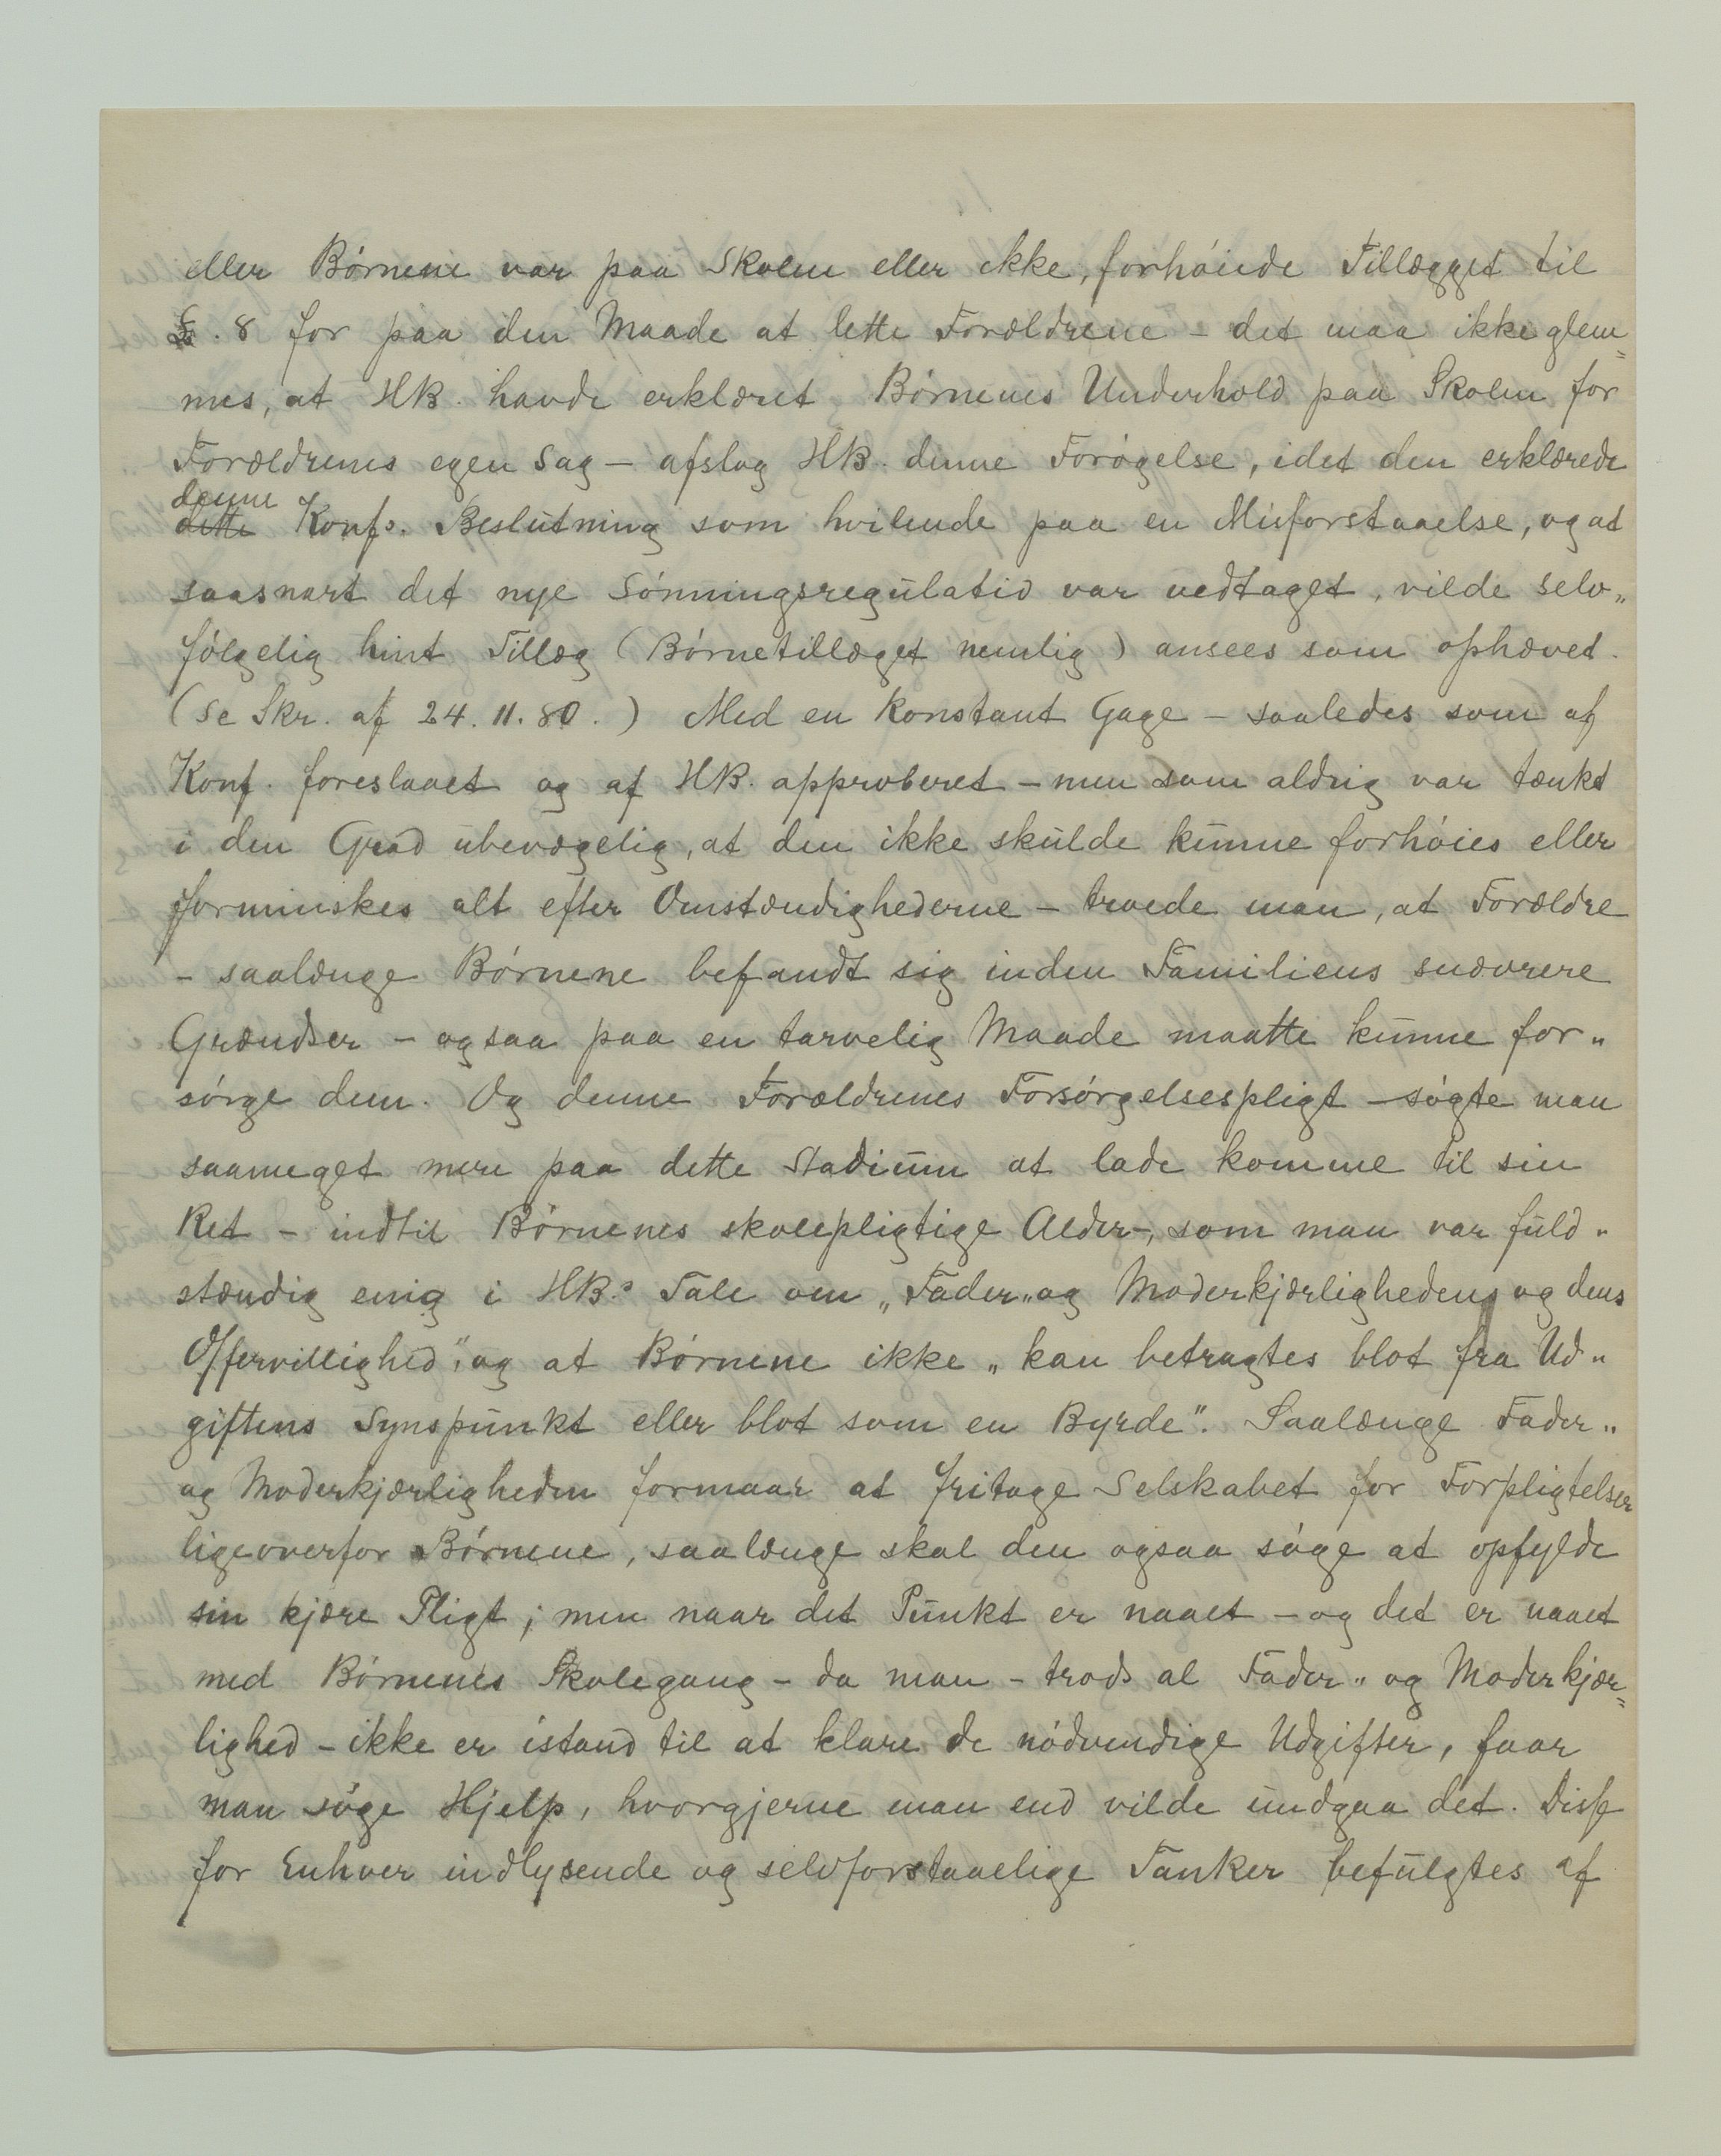 eller Børnene var paa Skolen eller ikke, forhøiede Tillægget til
£. 8 for paa den Maade at lette Forældrene – det maa ikke glem=
mes, at HB. havde erklæret Børnenes Underhold paa Skolen for
Forældrenes egen Sag – afslog HB. denne Forøgelse, idet den erklærede
denne
dette Konfs. Beslutning som hvilende paa en Misforstaaelse, og at
saasnart det nye Lønningsregulativ var vedtaget, vilde selv„
følgelig hint Tillæg (Børnetillæget nemlig) ansees som ophævet.
(Se Skr. af 24. 11. 80.) Med en konstant Gage – saaledes som af
Konf. foreslaaet og af HB. approberet – men som aldrig var tænkt
i den Grad ubevægelig, at den ikke skulde kunne forhøies eller
forminskes alt efter Omstændighederne – troede man, at Forældre
– saalænge Børnene befandt sig inden Familiens snævrere
Grændser – ogsaa paa en tarvelig Maade maatte kunne for„
sørge dem. Og denne Forældrenes Forsørgelsespligt – søgte man
saameget mere paa dette Stadium at lade komme til sin
Ret – indtil Børnenes skolepligtige Alder –, som man var fuld„
stændig enig i HB.s Tale om „Fader„ og Moderkjærligheden og dens
Offervillighed", og at Børnene ikke „kan betragtes blot fra Ud„
giftens Synspunkt eller blot som en Byrde". Saalænge Fader„
og Moderkjærligheden formaar at fritage Selskabet for Forpligtelser
ligeoverfor Børnene, saalænge skal den ogsaa søge at opfylde
sin kjære Pligt; men naar det Punkt er naaet – og det er naaet
med Børnenes Skolegang – da man – trods al Fader„ og Moderkjær=
lighed – ikke er istand til at klare de nødvendige Udgifter, faar
man søge Hjelp, hvorgjerne man end vilde undgaa det. Disse
for Enhver indlysende og selvforstaaelige Tanker befulgtes af